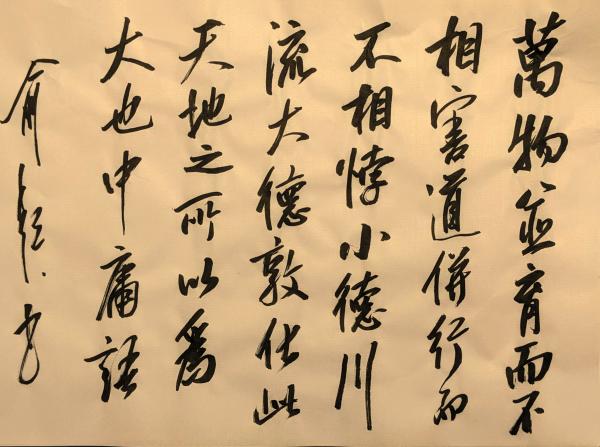 萬物並育而不
相害道併行而
不相悖小德川
流大德敦化此
天地之所以為
大也中庸語
俞 書